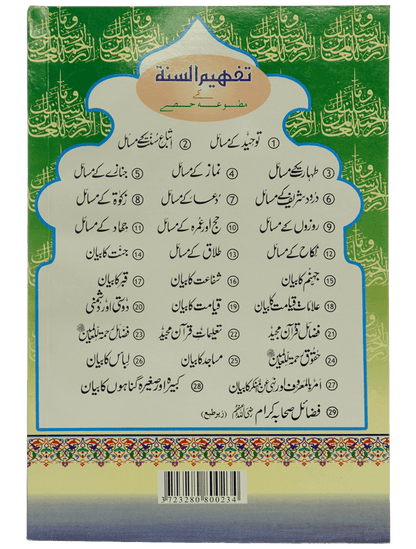 تفہیم السنۃ
کے
مطبوعہ حصے
① توحید کے مسائل ② اتباع سنت کے مسائل
③ طہارت کے مسائل ④ نماز کے مسائل ⑤ جنازے کے مسائل
⑥ درود شریف کے مسائل ⑦ دعا کے مسائل ⑧ زکوٰۃ کے مسائل
⑨ روزوں کے مسائل ⑩ حج اور عمرہ کے مسائل ⑪ جہاد کے مسائل
⑫ نکاح کے مسائل ⑬ طلاق کے مسائل ⑭ جنت کا بیان
⑮ جہنم کا بیان ⑯ شفاعت کا بیان ⑰ قبر کا بیان
⑱ علامات قیامت کا بیان ⑲ قیامت کا بیان ⑳ دوستی اور دشمنی
㉑ فضائل قرآن مجید ㉒ تعلیمات قرآن مجید ㉓ فضائل رحمۃ للعالمین ﷺ
㉔ حقوق رحمۃ للعالمین ﷺ ㉕ مساجد کا بیان ㉖ لباس کا بیان
㉗ امر بالمعروف اور نہی عن المنکر کا بیان ㉘ کبیرہ اور صغیرہ گناہوں کا بیان
㉙ فضائل صحابہ کرام رضی اللہ عنہم (زیر طبع)
3 723280 800234